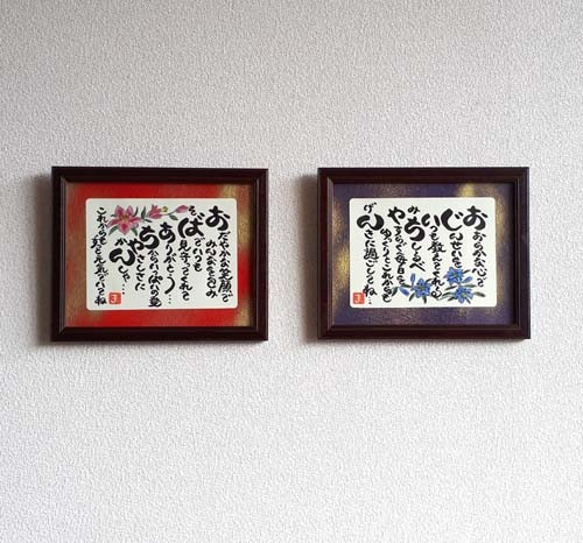 おだやかな笑顔で
みんなを包み
そばでいつも
見守ってくれて
ありがとう…
ちからいっぱいの愛
やさしさに
かんしゃ…
これからもずっと元気でいてね
おおらかな心で
じんせいを
いつも教えてくれる
みちしるべ
やすらぐ毎日を
ゆっくりとこれからも
げんきに過ごしてね…